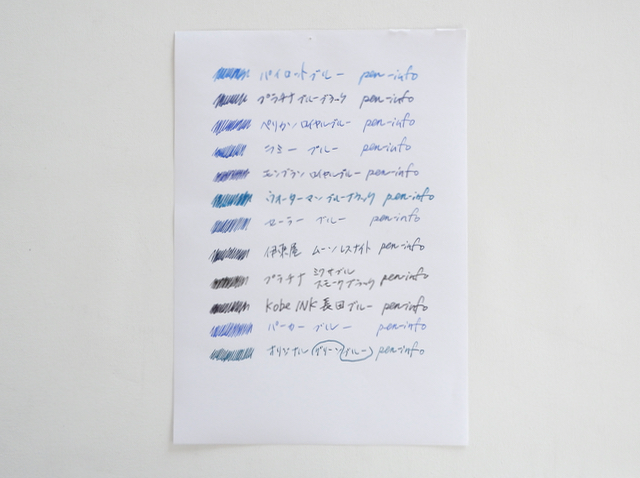 パイロットブルー pen-info
プラチナ ブルーブラック pen-info
ペリカン ロイヤルブルー pen-info
ラミー ブルー pen-info
モンブラン ロイヤルブルー pen-info
ウォーターマン ブルーブラック pen-info
セーラー ブルー pen-info
伊東屋 ムーンレスナイト pen-info
プラチナ ミクサブル
スモークブラック pen-info
Kobe INK 長田ブルー pen-info
パーカー ブルー pen-info
オリジナル グリーン ブルー pen-info